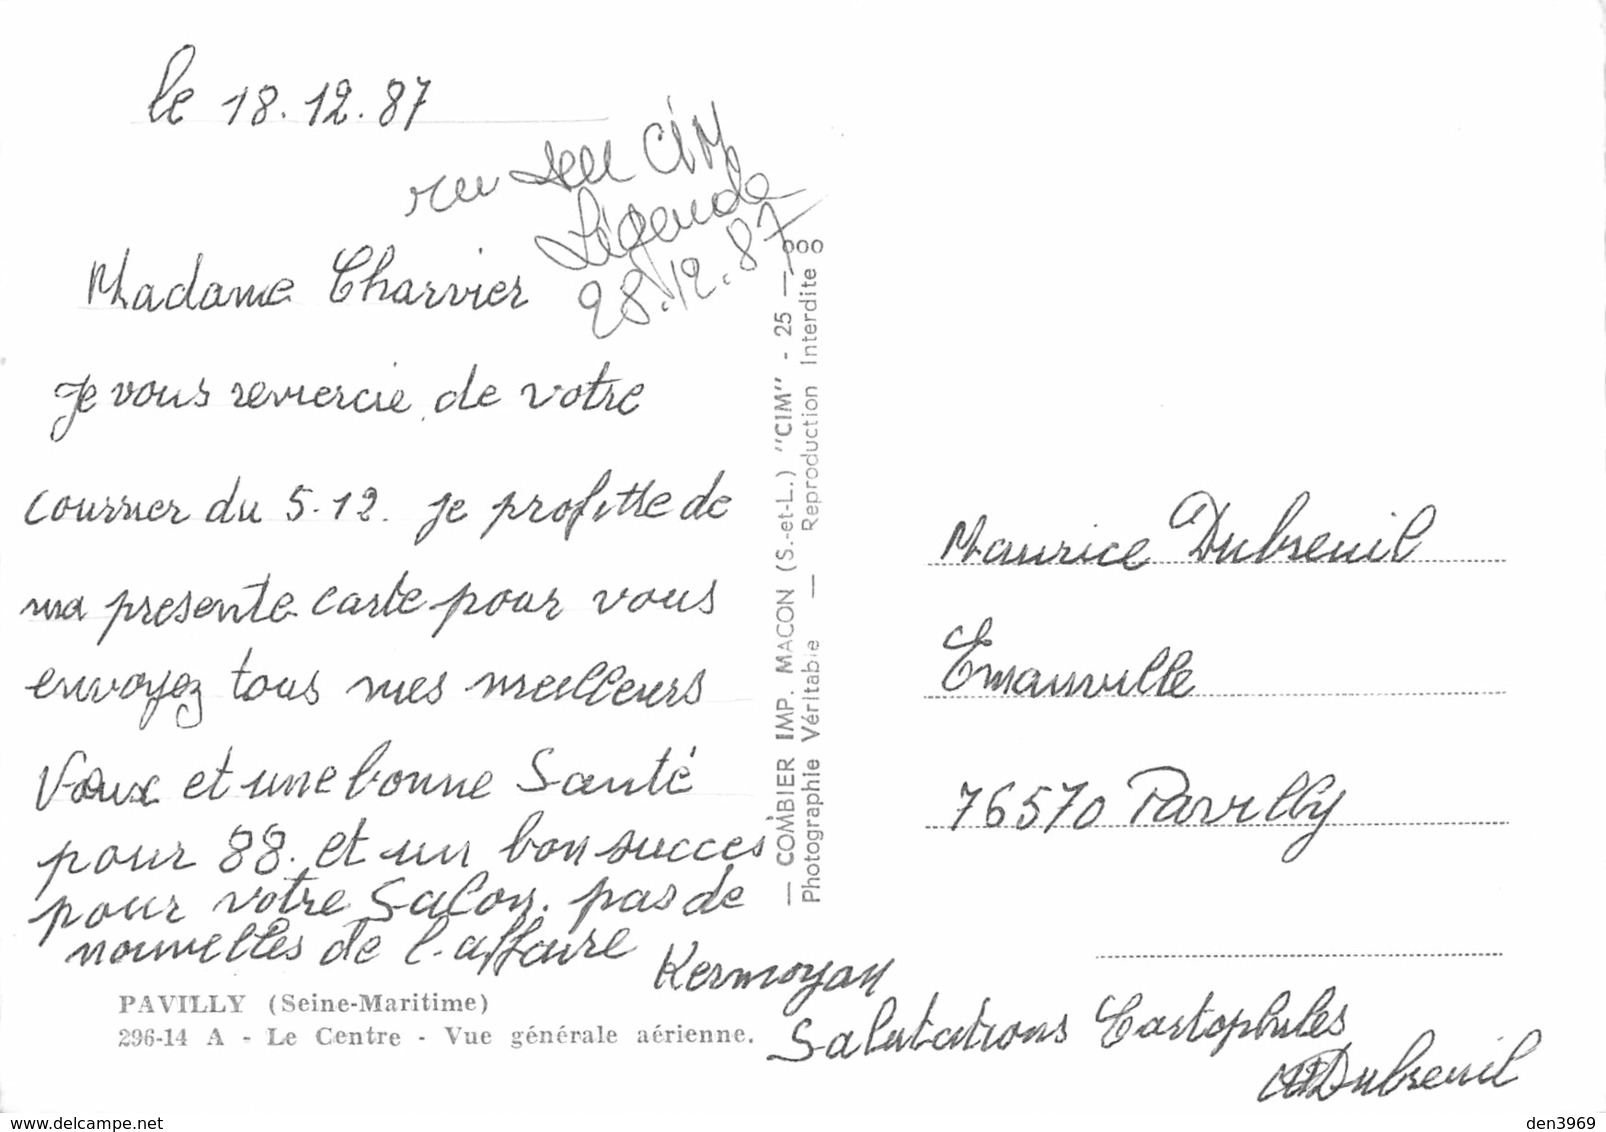 le 18.12.87
CIM
Légende
28.12.87
Madame Charvier
Je vous remercie de votre
courrier du 5.12. je profitte de
ma presente carte pour vous
envoyez tous mes meilleurs
Vœux et une bonne Santé
pour 88. et un bon succes
pour votre Salon. pas de
nouvelles de l'affaire
Kermoyan
Salutations Cartophiles
Dubreuil
PAVILLY (Seine-Maritime)
296-14 A - Le Centre - Vue générale aérienne.
— COMBIER IMP. MACON (S.-et-L.) "CIM" - 25 —
Photographie Véritable — Reproduction Interdite
Maurice Dubreuil
Emanville
76570 Pavilly
delcampe.net
den3969